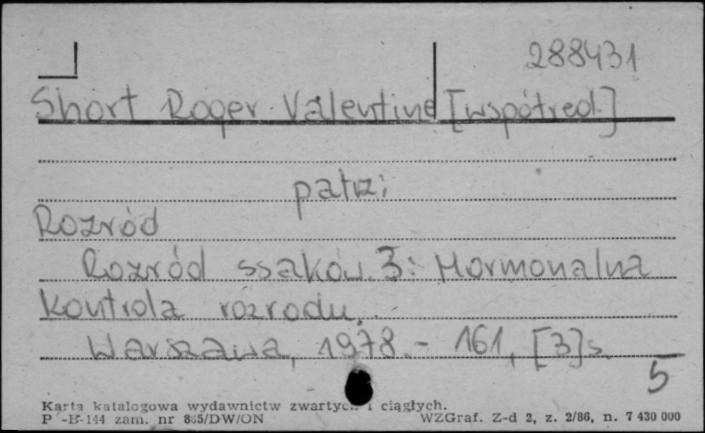 288431
Short Roger Valentine [współred.]
patrz:
Rozród
Rozród ssaków. 3: Hormonalna
kontrola rozrodu.
Warszawa, 1978. - 161, [3] s.
5
Karta katalogowa wydawnictw zwartych i ciągłych.
P -B-144 zam. nr 865/DW/ON WZGraf. Z-d 2, z. 2/86, n. 7 430 000